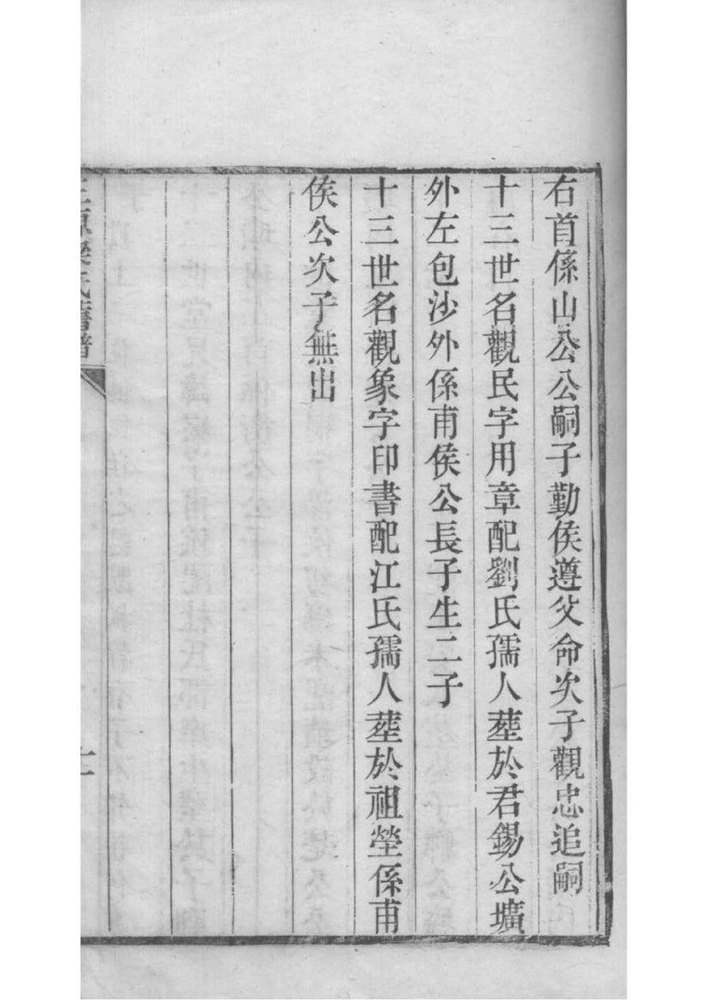 右首係山公公嗣子勤侯遵父命次子觀忠追嗣
十三世名觀民字用章配劉氏孺人塟於君錫公壙
外左包沙外係甫侯公長子生二子
十三世名觀象字印書配江氏孺人塟於祖塋係甫
侯公次子無出
氏舊譜